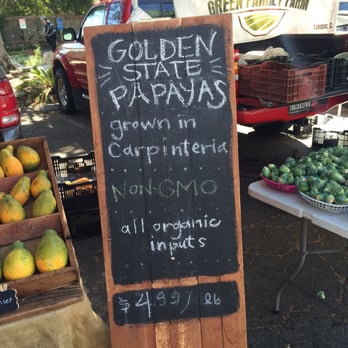 GREEN FAMILY FARM
Lompoc, C
GOLDEN
STATE
PAPAYAS
grown in
Carpinteria
NON-GMO
all organic
inputs
$4.99/lb